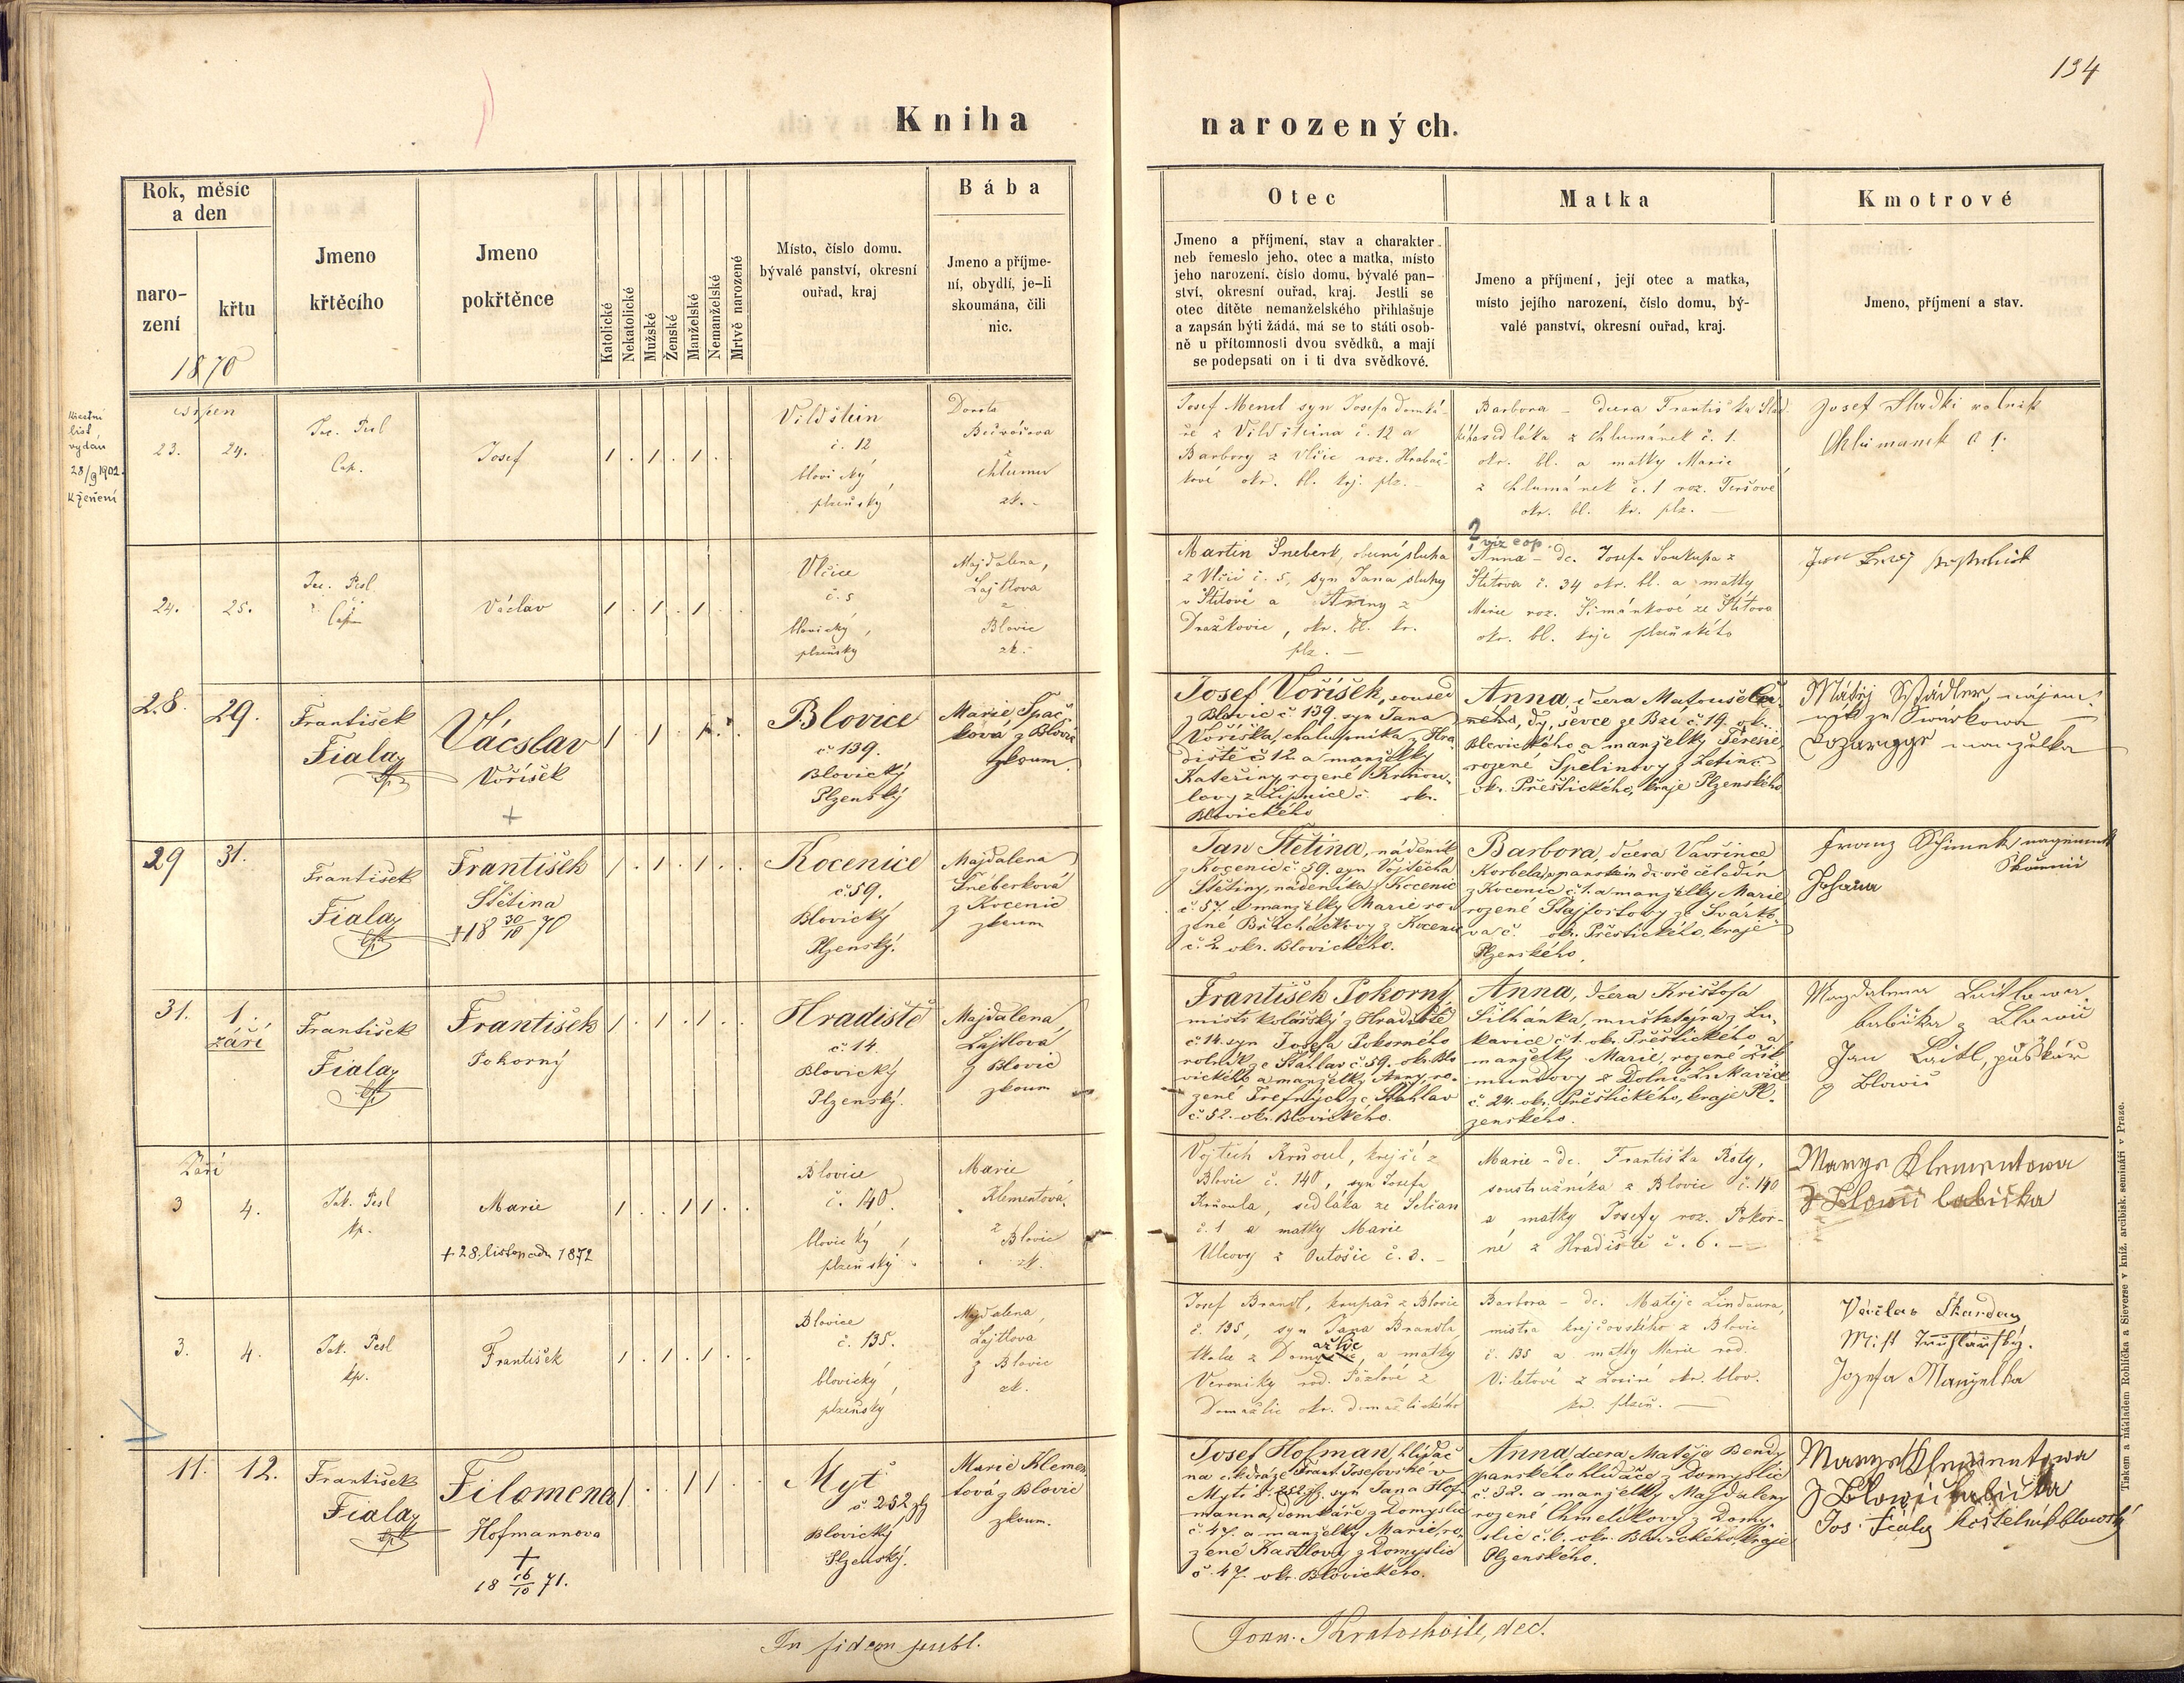 134
Kniha narozených.
Rok, měsíc
a den
naro-
zení
křtu
1870
Jmeno
křtěcího
Jmeno
pokřtěnce
Katolické
Nekatolické
Mužské
Ženské
Manželské
Nemanželské
Mrtvě narozené
Místo, číslo domu.
bývalé panství, okresní
ouřad, kraj
Bába
Jmeno a příjme-
ní, obydlí, je-li
skoumána, čili
nic.
Otec
Jmeno a příjmení, stav a charakter
neb řemeslo jeho, otec a matka, místo
jeho narození, číslo domu, bývalé pan-
ství, okresní ouřad, kraj. Jestli se
otec dítěte nemanželského přihlašuje
a zapsán býti žádá, má se to státi osob-
ně u přítomnosti dvou svědků, a mají
se podepsati on i ti dva svědkové.
Matka
Jmeno a příjmení, její otec a matka,
místo jejího narození, číslo domu, bý-
valé panství, okresní ouřad, kraj.
Kmotrové
Jmeno, příjmení a stav.
list
vydán
28/9 1902
k ženění
srpen
23.
24.
Pesl
Josef
Vildštein
č. 12
blovický
plzeňský
Dorota
z
Chlumu
zk.
Josef Mencl syn Josefa domká-
ře z Vildšteina č. 12 a
Barbory z Vlčic roz. Hrabač-
kové okr. bl. krj. plz.
Barbora - dcera Františka Slad-
kého sedláka z Chlumánek č. 1.
okr. bl. a matky Marie
z Chlumánek č. 1 roz.
okr. bl. kr. plz.
Josef Sladki rolnik
24.
25.
Pesl
Václav
Vlčice
č. 5
blovický,
plzeňský
Majdalena,
Lajtlova
z
Blovic
zk.
Martin Šneberk, obecní sluha
z Vlčic č. 5, syn Jana sluhy
v Štítově a Anny z
Dražkovic, okr. bl. kr.
plz.
2 viz eop.
Anna - dc. Josefa Soukupa z
Štítova č. 34 okr. bl. a matky
Marie roz. Šimánkové ze Štítova
okr. bl. kraje plzeňského
28.
29.
František
Fiala
Vácslav
Voříšek
Blovice
č. 139.
Blovický
Plzenský
Marie Špač-
ková z Blovic
zkoum.
Josef Voříšek, soused
z Blovic č. 139. syn Jana
Voříška, chalupníka z Hra-
diště č 12 a manželky
Kateřiny rozené Krňou-
lovy z Lipnice č. okr.
Blovického
Anna, dcera Matouše
ševce ze Bzí č. 19. okr.
Blovického a manželky Teresie,
rozené Špelinovy z Letin č.
okr. Přeštického, kraje Plzenského
29
31.
František
Fiala
František
Štětina
+ 18 30/10 70
Kocenice
č. 59.
Blovický
Plzenský.
Majdalena
Šneberková
z Kocenic
zkoum
Jan Štětina, nádeník
z Kocenic č. 59. syn Vojtěcha
Štětiny, nádeníka z Kocenic
č. 57. a manželky Marie ro-
zené z Kocenic
č. 2. okr. Blovického.
Barbora, dcera Vavřince
z Kocenic č. 1. a manželky Marie
rozené Štajfortovy ze Svárko-
va č. okr. Přeštického, kraje
Plzenského.
Johana
31.
1.
září
František
Fiala
František
Pokorný
Hradiště
č. 14.
Blovický
Plzenský.
Majdalena
Lajtlová
z Blovic
zkoum
František Pokorný,
mistr kolářský z Hradiště
č. 14. syn Josefa Pokorného
rolníka ze Šťáhlav č. 59. okr. Blo-
vického a manželky Anny, ro-
zené Trefných ze Šťáhlav
č. 52. okr. Blovického.
Anna, dcera Krištofa
Silhánka, z Lu-
kavice č. 1. okr. Přeštického, a
manželky Marie, rozené Žik-
mundovy z Dolní Lukavice
č. 24. okr. Přeštického, kraje Pl-
zenského.
Magdalena Laitlowa
babička z Blowic
Jan Laitl, puškař
z Blowic
Září
3
4.
Jak. Pesl
kp.
Marie
+ 28. listopadu 1872
Blovice
č. 140.
blovický,
plzeňský
Marie
Klementová
z Blovic
zk.
Vojtěch Krňoul, krejčí z
Blovic č. 140, syn Josefa
Krňoula, sedláka ze
č. 1 a matky Marie
Ulcovy z č. 3.
Marie - dc. Františka Roty,
soustružníka z Blovic č. 140
a matky Josefy roz. Pokor-
né z Hradiště č. 6.
Marye Klementowa
z Blowic babička
3.
4.
Jak. Pesl
kp.
František
Blovice
č. 135.
blovický,
plzeňský
Majdalena,
Lajtlova
z Blovic
zk.
Josef Brandl, z Blovic
č. 135, syn Jana Brandla,
tkalce z Domažlic, a matky
Veroniky rod. z
Domažlic okr. domažlického
Barbora - dc. Matěje Lindaura,
mistra krejčovského z Blovic
č. 135 a matky Marie rod.
okr. blov.
kr. plzeň.
Václav Škarda
Mist Truhlařský.
Jozefa Manželka
11.
12.
František
Fiala
Filomena
Hofmannova
+
18 16/10 71.
Mýť
č. 252
Blovický
Plzenský.
Marie Klemen-
tová z Blovic
zkoum.
Josef Hofman, hlídač
na dráze Frant. Josefovské v
Mýti č. 252 syn Jana Hof-
manna, domkáře z Domyslic
č. 47. a manželky Marie, ro-
zené Kastlovy z Domyslic
č. 47. okr. Blovického.
Anna, dcera Matěje Bendy
panského hlídače z Domyslic
č. 32. a manželky Majdaleny
rozené Chmelíkovy z Domy-
slic č. 6. okr. Blovického, kraje
Plzenského.
Marye Klementowa
z Blowic babička
Jos. Fiala kostelník blowský
In fidem publ.
Joan. Kratochvile, dec.
Tiskem a nákladem Rohlíčka a Sieverse v kníž. arcibisk. semináři v Praze.